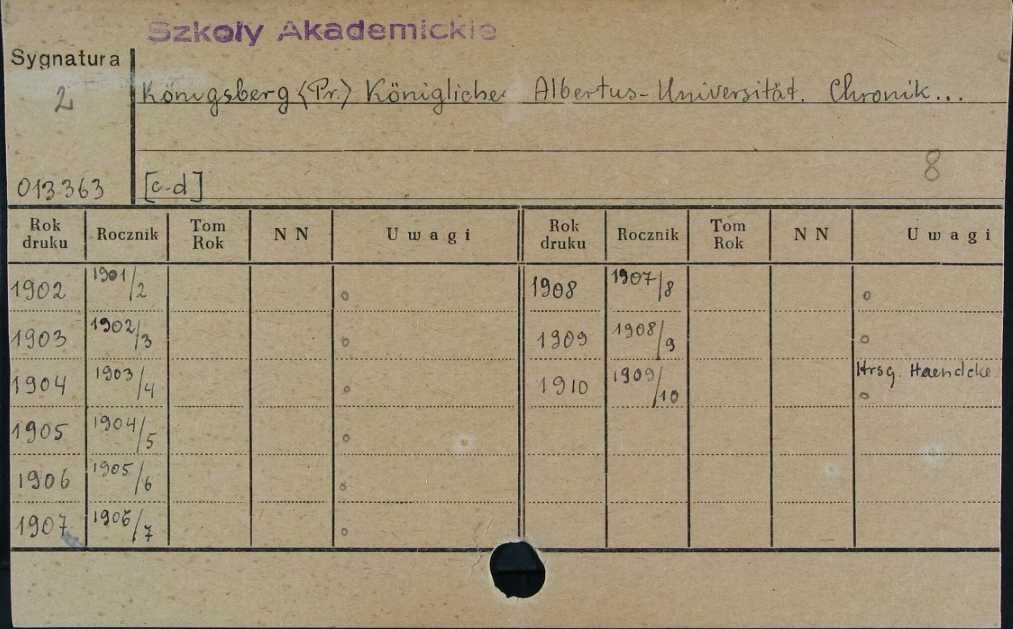 Szkoły Akademickie
Sygnatura
2
Königsberg <Pr.> Königliche Albertus-Universität. Chronik...
8
013363 [c-d]
Rok druku Rocznik Tom Rok NN Uwagi Rok druku Rocznik Tom Rok NN Uwagi
1902 1901/2 o 1908 1907/8 o
1903 1902/3 o 1909 1908/9 o
1904 1903/4 o 1910 1909/10 Hrsg. Haendcke o
1905 1904/5 o
1906 1905/6 o
1907 1906/7 o